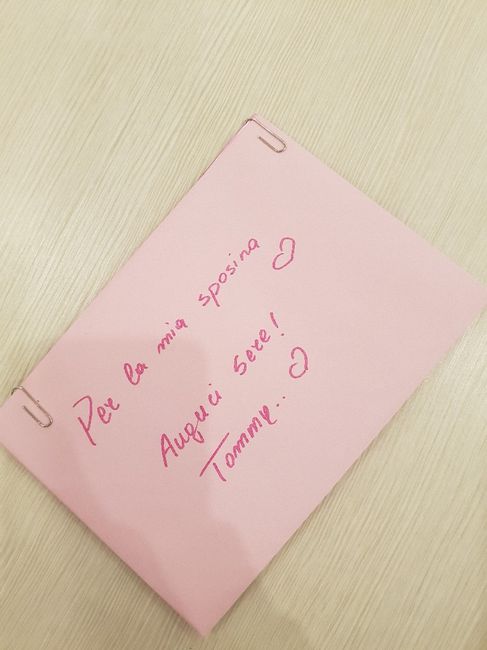 Per la mia sposina
Auguri Sere!
Tommy..